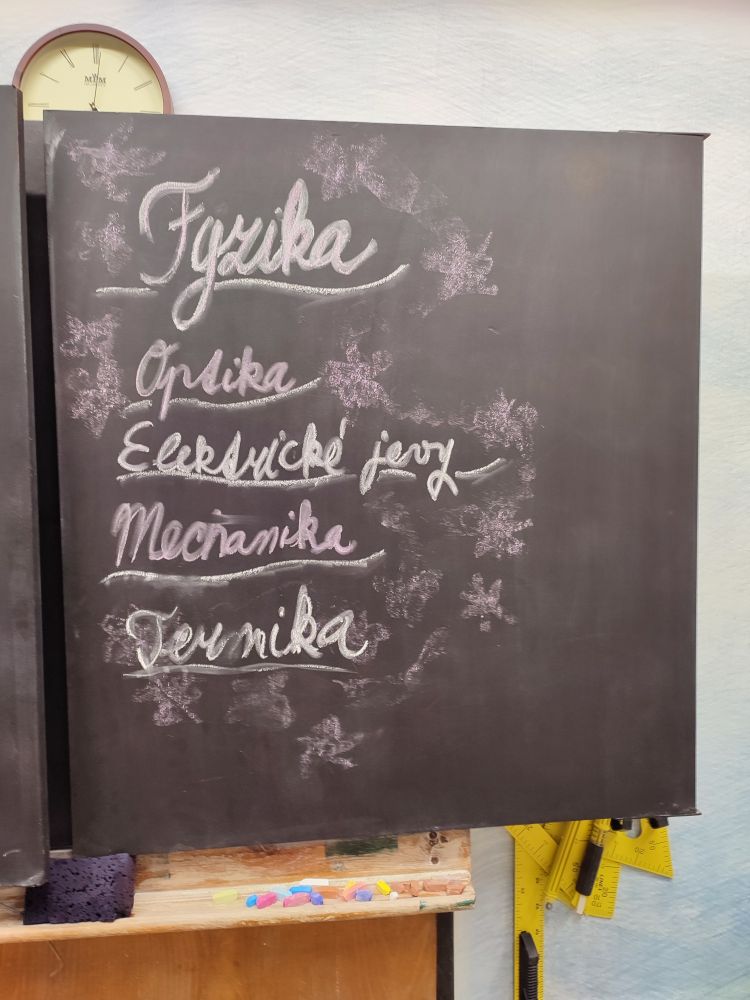 MPM
Fyzika
Optika
Elektrické jevy
Mechanika
Termika